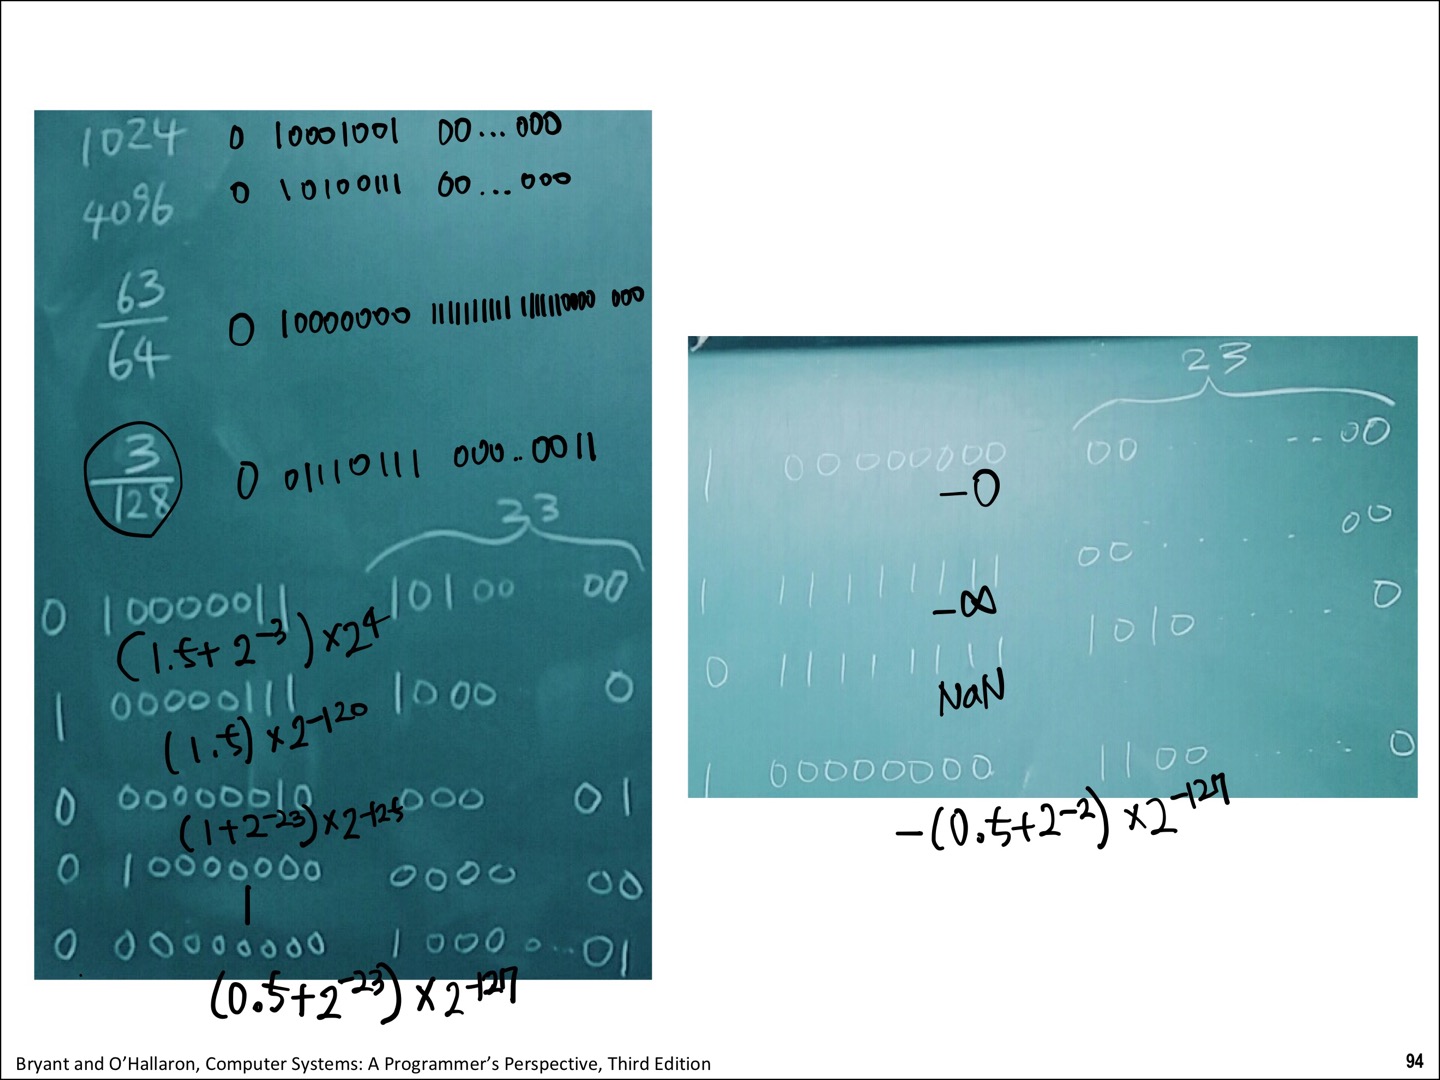 1024 0 10001001 00...000
4096 0 10100111 00...000
63/64 0 10000000 000
3/128 0 01110111 000..0011
23
0 10000011 10100 00
(1.5+2^-3)×2^4
1 00000111 1000 0
(1.5)×2^-120
0 00000010 000 01
(1+2^-23)×2^-125
0 10000000 0000 00
1
0 00000000 1000...01
(0.5+2^-23)×2^-127
23
1 00000000 00 ...00
-0
1 11111111 00 ..... 00
-∞
0 11111111 1010 .... 0
NaN
1 00000000 1100 ..... 0
-(0.5+2^-2)×2^-127
Bryant and O'Hallaron, Computer Systems: A Programmer's Perspective, Third Edition
94